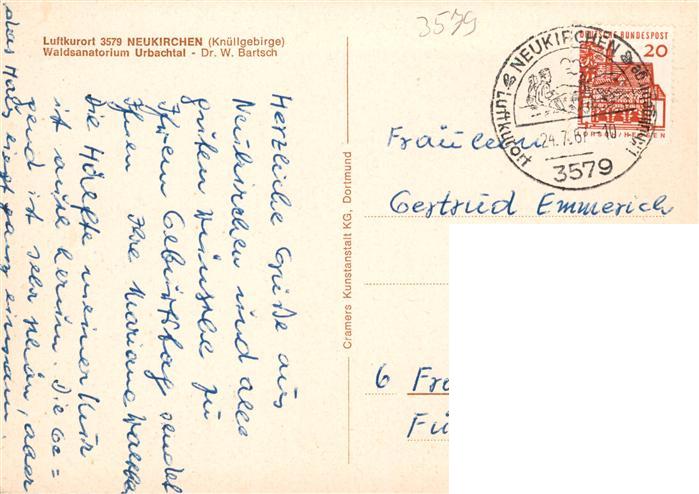 3579
Luftkurort 3579 NEUKIRCHEN (Knüllgebirge)
Waldsanatorium Urbachtal - Dr. W. Bartsch
Herzliche Grüße aus
Neukirchen und alle
guten Wünsche zu
Ihrem Geburtstag sendet
Ihnen Ihre Mariane
Die Hälfte meiner Kur
ist auch herum. Die Ge=
gend ist sehr schön, aber
das Haus liegt ganz einsam.
Cramers Kunstanstalt KG, Dortmund
DEUTSCHE BUNDESPOST
20
NEUKIRCHEN
Luftkurort
24.7.67 - 10
3579
Fräulein
Gertrud Emmerich
6 Fra
Fü